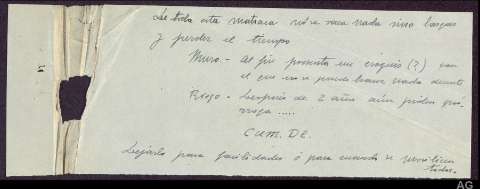 De toda esta matraca no se saca nada sino largas
y perder el tiempo
Muro - Al fin presenta un croquis (?) con
el que no se puede hacer nada
Riego - Después de 2 años aún piden pró-
rroga .....
CUM. DE.
Dejarlo para facilidades ó para cuando se
AG